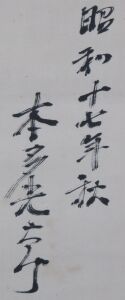 昭和十七年秋
本多光太郎